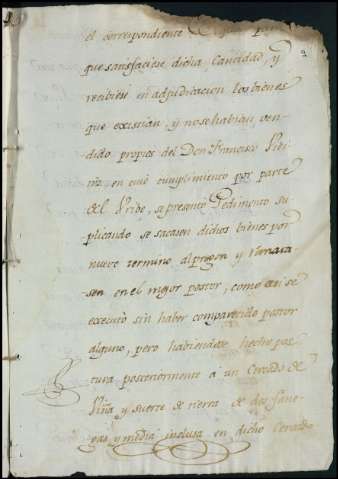 el correspondiente
que satisfaciese dicha Cantidad, y
recibiese en adjudicacion los bienes
que existian, y no se habian ven-
dido propios del Don Francisco
en cuio cumplimiento por parte
del Pride, se presentó Pedimento su-
plicando se sacasen dichos bienes por
nueve termino al pregon y rematá-
sen en el mejor postor, como asi se
executó sin haber comparecido postor
alguno, pero habiendose hecho pos-
tura posteriormente á un Cercado de
Viña y suerte de tierra de dos fane-
gas y media inclusa en dicho Cercado